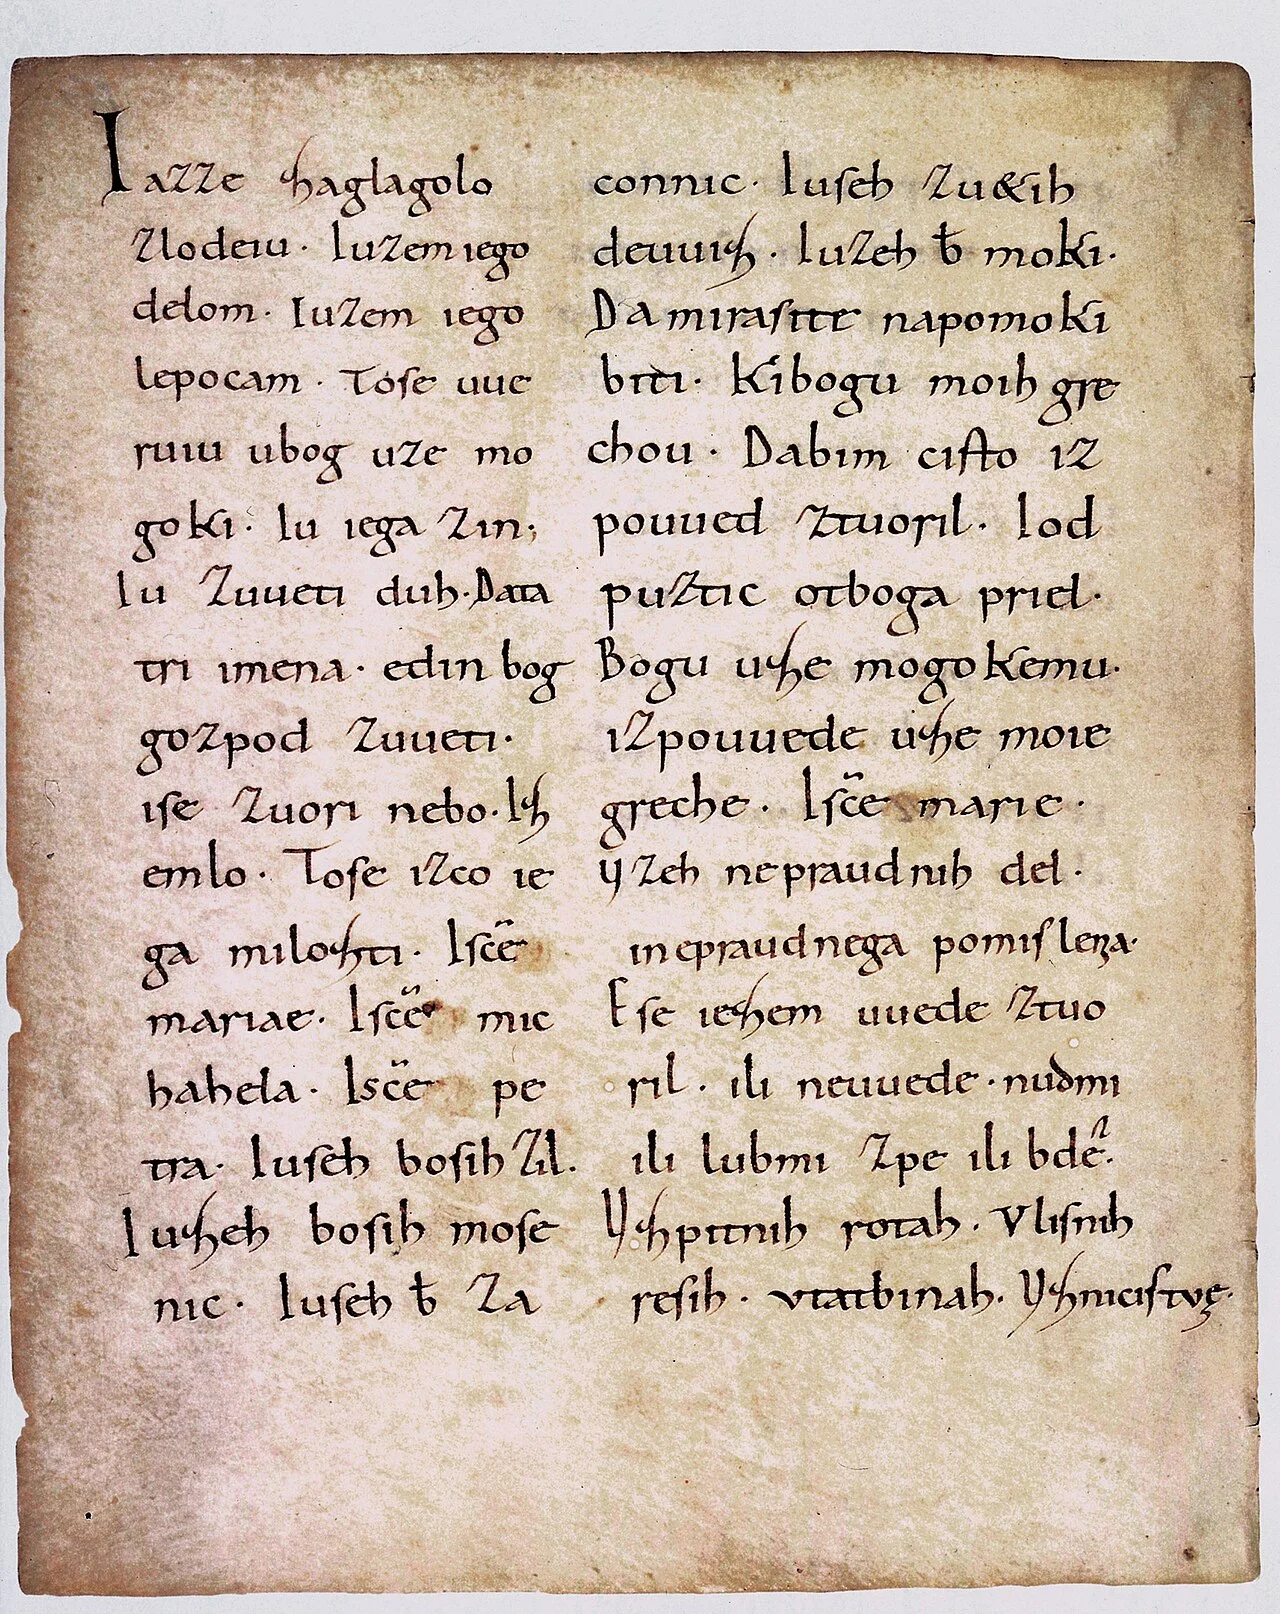 Iazze zhaglagolo
Zlodeiu· Iuzem iego
delom· Iuzem iego
lepocam· Tose uue
ruiu ubog uze mo
goki· Iu iega Zin;
Iu Zuueti duh· Data
tri imena· edin bog
gozpod Zuueti·
ise Zuori nebo· Izh
emlo· Tose izco ie
ga milozhti· Isc̃e
mariae· Isc̃e mic
hahela· Isc̃e pe
tra· Iuseh bosih Zil·
Iuzheh bosih mose
nic· Iuseh b̄ Za
connic· Iuseh Zu&ih
deuuizh· Iuzeh b̄ moki·
Da mirasite napomoki
biti· Kibogu moih gre
chou· Dabim cisto iz
pouued ztuoril· Iod
puztic otboga priel·
Bogu uzhe mogokemu·
izpouuede uzhe moie
greche· Isc̃e marie·
Uzeh nepraudnih del·
inepraudnega pomislenza·
Ese iezhem uuede Ztuo
ril· ili neuuede· nudmi
ili lubmi Zpe ili bde²·
Uzhpitnih rotah· Vlisnih
resih· vtatbinah· Uzhnicistve·